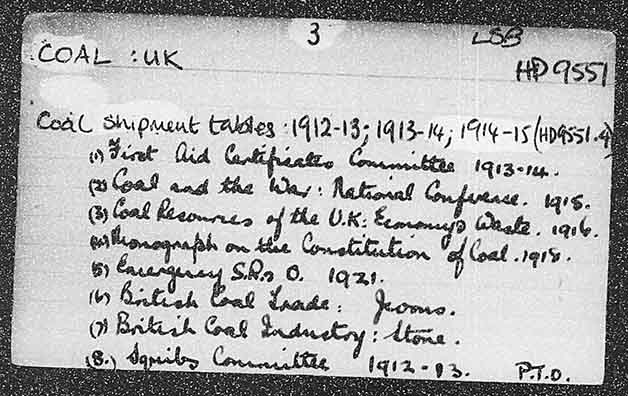 3
LSB
COAL : UK
HD 9551
Coal shipment tables 1912-13; 1913-14; 1914-15 (HD9551.4)
(1) First Aid Certificates Committee 1913-14.
(2) Coal and the War: National Conference. 1915.
(3) Coal Resources of the U.K: Economy & Waste. 1916.
Monograph on the Constitution of Coal. 1918.
(5) Emergency S.R. & O. 1921.
(6) British Coal Trade: Jevons.
(7) British Coal Industry: Stone.
(8.) Squibs Committee 1912-13.
P.T.O.